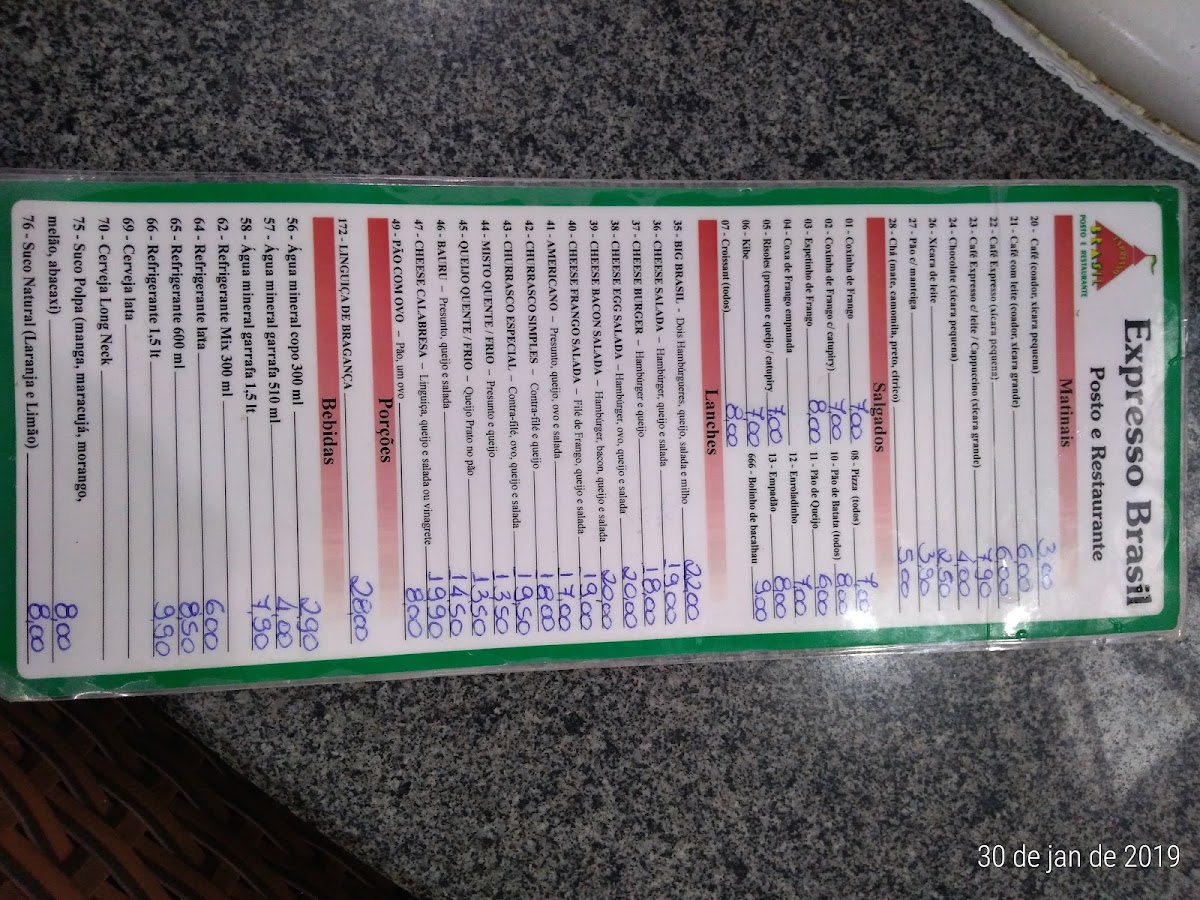 EXPRESSO
BRASIL
POSTO E RESTAURANTE
Expresso Brasil
Posto e Restaurante
Matinais
20 - Café (coador, xícara pequena) 3,00
21 - Café com leite (coador, xícara grande) 6,00
22 - Café Expresso (xícara pequena) 6,00
23 - Café Expresso c/ leite / Capuccino (xícara grande) 7,90
24 - Chocolate (xícara pequena) 4,00
26 - Xícara de leite 2,50
27 - Pão c/ manteiga 3,90
28 - Chá (mate, camomila, preto, cítrico) 5,00
Salgados
01 - Coxinha de Frango 7,00 08 - Pizza (todos) 7,00
02 - Coxinha de Frango c/ catupiry) 7,00 10 - Pão de Batata (todos) 8,00
03 - Espetinho de Frango 8,00 11 - Pão de Queijo 6,00
04 - Coxa de Frango empanada 12 - Enroladinho 7,00
05 - Risoles (presunto e queijo / catupiry 7,00 13 - Empadão 8,00
06 - Kibe 7,00 666 - Bolinho de bacalhau 9,00
07 - Croissant (todos) 8,00
Lanches
35 - BIG BRASIL - Dois Hambúrgueres, queijo, salada e milho 22,00
36 - CHEESE SALADA – Hambúrger, queijo e salada 19,00
37 - CHEESE BURGER – Hambúrger e queijo 18,00
38 - CHEESE EGG SALADA – Hambúrger, ovo, queijo e salada 20,00
39 - CHEESE BACON SALADA – Hambúrger, bacon, queijo e salada 20,00
40 - CHEESE FRANGO SALADA – Filé de Frango, queijo e salada 19,00
41 - AMERICANO – Presunto, queijo, ovo e salada 17,00
42 - CHURRASCO SIMPLES – Contra-filé e queijo 18,00
43 - CHURRASCO ESPECIAL – Contra-filé, ovo, queijo e salada 19,50
44 - MISTO QUENTE / FRIO – Presunto e queijo 13,50
45 - QUEIJO QUENTE / FRIO – Queijo Prato no pão 13,50
46 - BAURU – Presunto, queijo e salada 14,50
47 - CHEESE CALABRESA – Linguiça, queijo e salada ou vinagrete 19,90
49 - PÃO COM OVO – Pão, um ovo 8,00
Porções
172 - LINGUIÇA DE BRAGANÇA 28,00
Bebidas
56 - Água mineral copo 300 ml 2,90
57 - Água mineral garrafa 510 ml 4,00
58 - Água mineral garrafa 1,5 lt 7,90
62 - Refrigerante Mix 300 ml
64 - Refrigerante lata 6,00
65 - Refrigerante 600 ml 8,50
66 - Refrigerante 1,5 lt 9,90
69 - Cerveja lata
70 - Cerveja Long Neck
75 - Suco Polpa (manga, maracujá, morango,
melão, abacaxi) 8,00
76 - Suco Natural (Laranja e Limão) 8,00
30 de jan de 2019